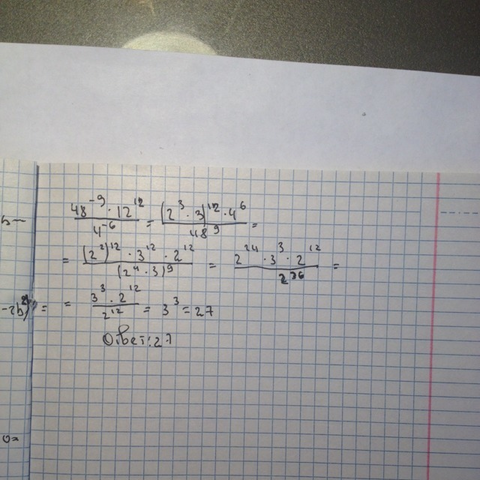 48⁻⁹ · 12¹² / 4⁻⁶ = (2³ · 3)¹² · 4⁶ / 48⁹ =
= (2²)¹² · 3¹² · 2¹² / (2⁴ · 3)⁹ = 2²⁴ · 3³ · 2¹² / 2³⁶ =
= 3³ · 2¹² / 2¹² = 3³ = 27
Ответ: 27